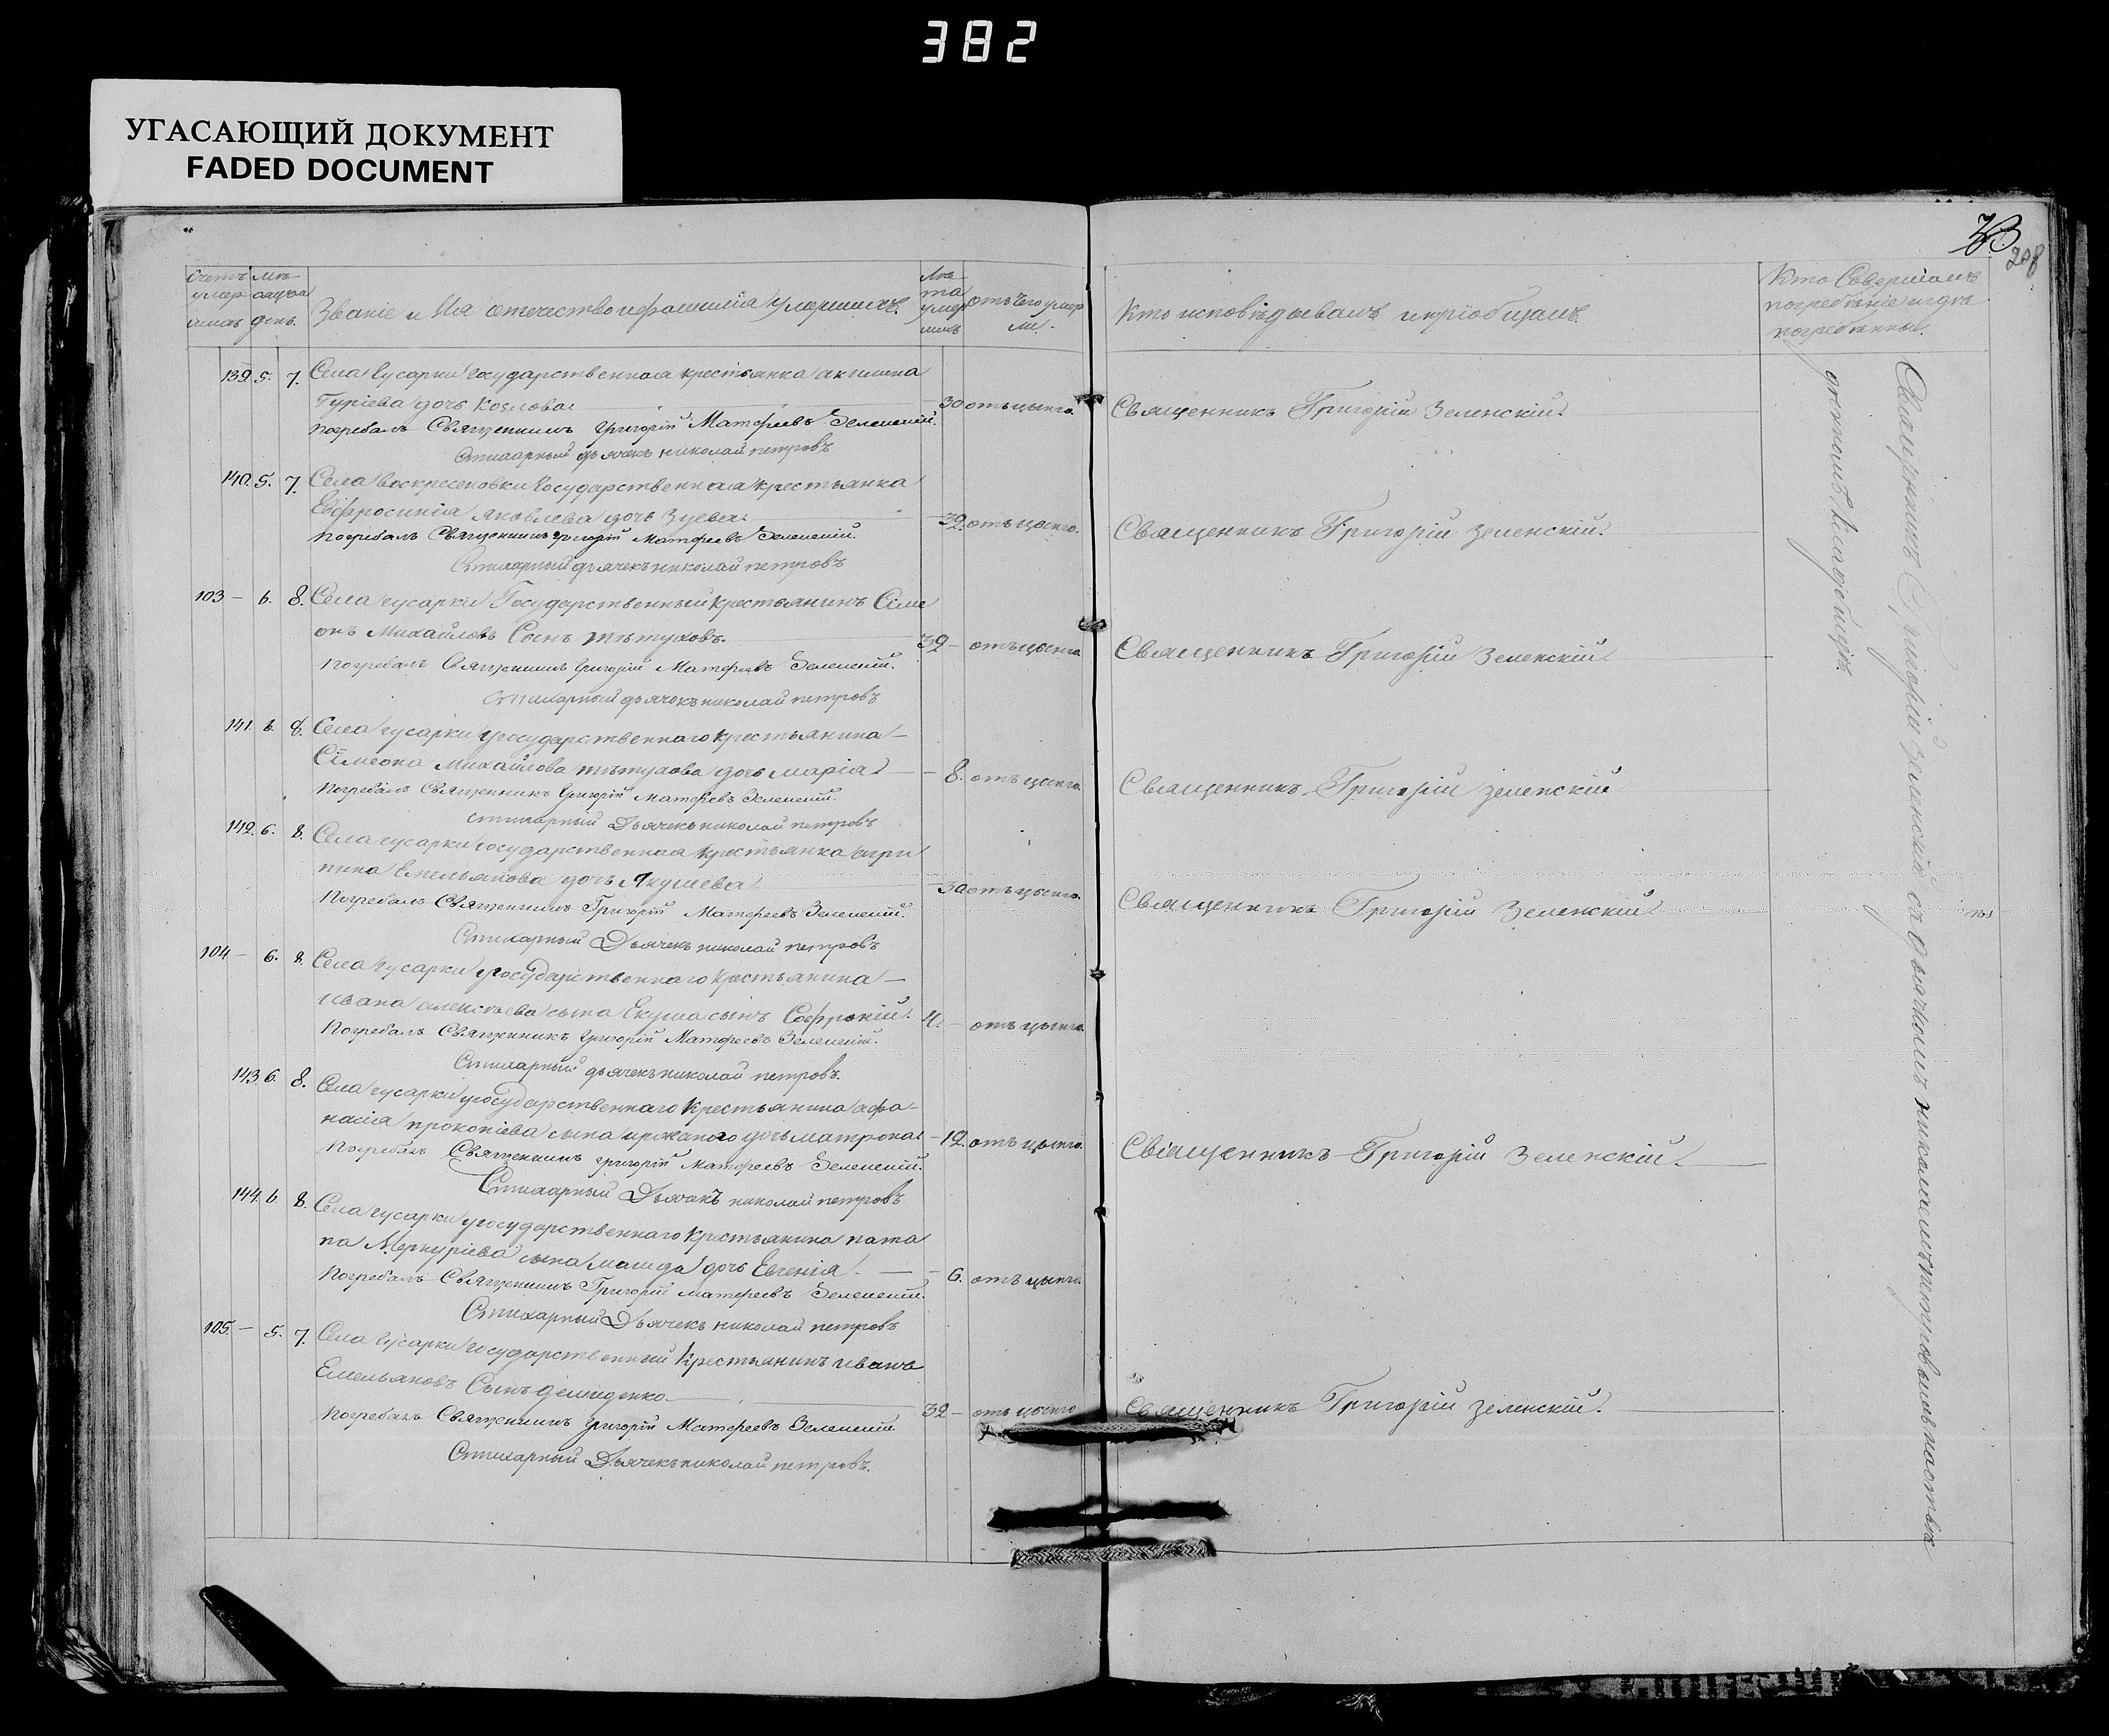 382
УГАСАЮЩИЙ ДОКУМЕНТ
FADED DOCUMENT
73
208
Счетъ умер
Мѣсяцъ и день.
Званіе и Имя отечество и фамилія умершихъ.
Лѣта умершихъ
отъ чего умерли.
Кто исповѣдывалъ и пріобщалъ.
Кто Совершалъ погребѣніе и гдѣ погребѣнны.
139. 5. 7. Села Гусарки государственная крестьянка акилина
Гуріева дочь Козлова. 30 отъ цынги. Священникъ Григорій Зеленскій.
Погребалъ Священникъ Григорій Матфеевъ Зеленскій.
Стихарный дьячекъ николай петровъ
140. 5. 7. Села воскресеновки Государственная крестьянка
Евфросинія яковлева дочь Зуева. 32. отъ цынги. Священникъ Григорій зеленскій.
Погребалъ Священникъ Григорій Матфеевъ Зеленскій.
Стихарный дьячекъ николай петровъ
103 — 6. 8. Села гусарки Государственный крестьянинъ Симе
онъ Михайловъ Сынъ пѣтуховъ. 32 — отъ цынги Священникъ Григорій Зеленскій
Погребалъ Священникъ Григорій Матфеевъ Зеленскій.
Стихарный дьячокъ николай петровъ
141. 6. 8. Села гусарки государственнаго крестьянина
Сімеона Михайлова пѣтухова дочь марія. 8. отъ цынги. Священникъ Григорій зеленскій
Погребалъ Священникъ Григорій Матфеевъ Зеленскій.
Стихарный Дьячекъ николай петровъ
142. 6. 8. Села гусарки государственная крестьянка агри
пина Емельянова дочь Якушева 30 отъ цынги. Священникъ Григорій Зеленскій
Погребалъ Священникъ Григорій Матфеевъ Зеленскій.
Стихарный Дьячекъ николай петровъ
104 — 6. 8. Села гусарки государственнаго крестьянина
ивана алексѣева сына Екуша сынъ Софроній. 4. — отъ цынги.
Погребалъ Священникъ Григорій Матфеевъ Зеленскій.
Стихарный дьячекъ николай петровъ.
143. 6. 8. Села гусарки государственнаго крестьянина афа-
насія прокопіева сына дочь матрона. 12. отъ цынги. Священникъ Григорій Зеленскій.
Погребалъ Священникъ Григорій Матфеевъ Зеленскій.
Стихарный Дьячокъ николай петровъ
144. 6. 8. Села гусарки государственнаго крестьянина пата
па Меркуріева сына дочь Евгенія. 6. отъ цынги.
Погребалъ Священникъ Григорій матфеевъ Зеленскій.
Стихарный Дьячекъ николай петровъ
105. — 5. 7. Села Гусарки государственный Крестьянинъ иванъ
Емельяновъ Сынъ демиденко 32 — отъ цынги Священникъ Григорій зеленскій.
Погребалъ Священникъ Григорій Матфеевъ Зеленскій
Стихарный Дьячекъ николай петровъ.
Священникъ Григорій Зеленскій съ Дьячкомъ николаемъ петровымъ на
данномъ кладбищѣ